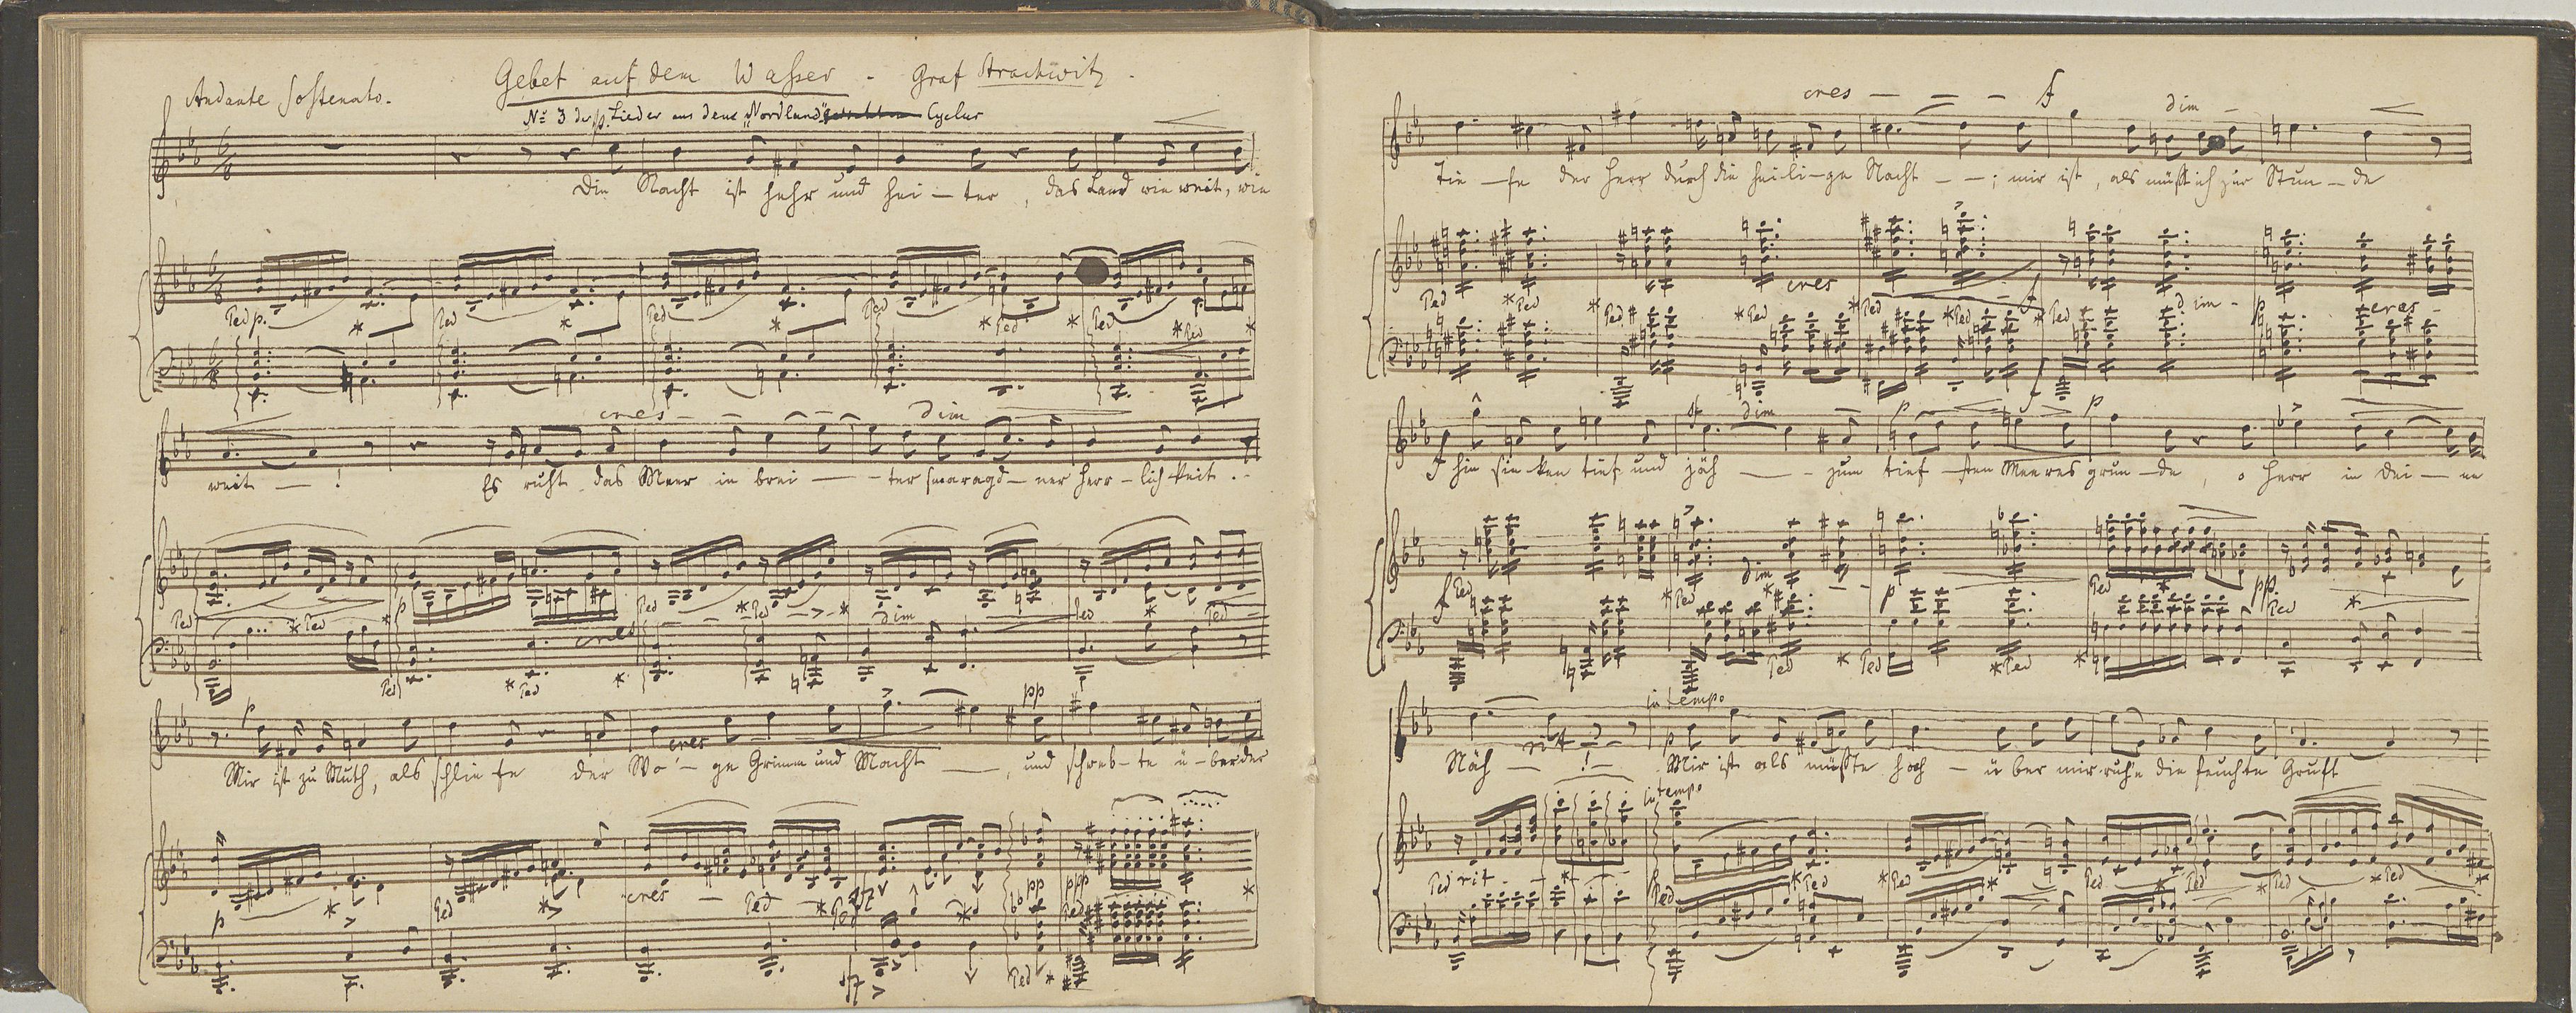 Gebet auf dem Waßer - Graf Strachwitz.
Andante Sostenato.
No 3 der Lieder aus dem "Nordland" Cyclus
Die Nacht ist hehr und hei - ter, das Land wie weit, wie
Ped p. * Ped * Ped * Ped * Ped * Ped * Ped *
cres - - - dim
weit - ! Es ruht das Meer in brei - - ter smaragd - ner Herr - lichkeit.
Ped * Ped * p cres Ped * Ped - > - * dim Ped * Ped
Ped * Ped *
p pp
cres
Mir ist zu Muth, als schlie - fe der Wo - ge Grimm und Macht - , und schweb - te ü - ber der
p * Ped * cres - Ped - * Ped * pp ppp Ped *
Ped *
cres - - - f dim -
Tie - fe der Herr durch die hei - li - ge Nacht - - ; mir ist, als müßt ich zur Stun - de
cres
Ped * Ped * Ped * Ped * Ped * Ped * f Ped dim - p cres -
sf dim p p
f hin sin - ken tief und jäh - - zum tief - sten Meeres grun - de, o Herr in dei - ne
f Ped * Ped dim * - - p Ped * pp. Ped *
Ped * Ped * Ped *
in tempo
rit - - p
Näh - ! - Mir ist als müßte hoch - ü ber mir ruh'n die feuchte Gruft
in tempo
Ped rit - - * - - Ped * Ped * Ped * Ped * Ped * Ped * Ped *